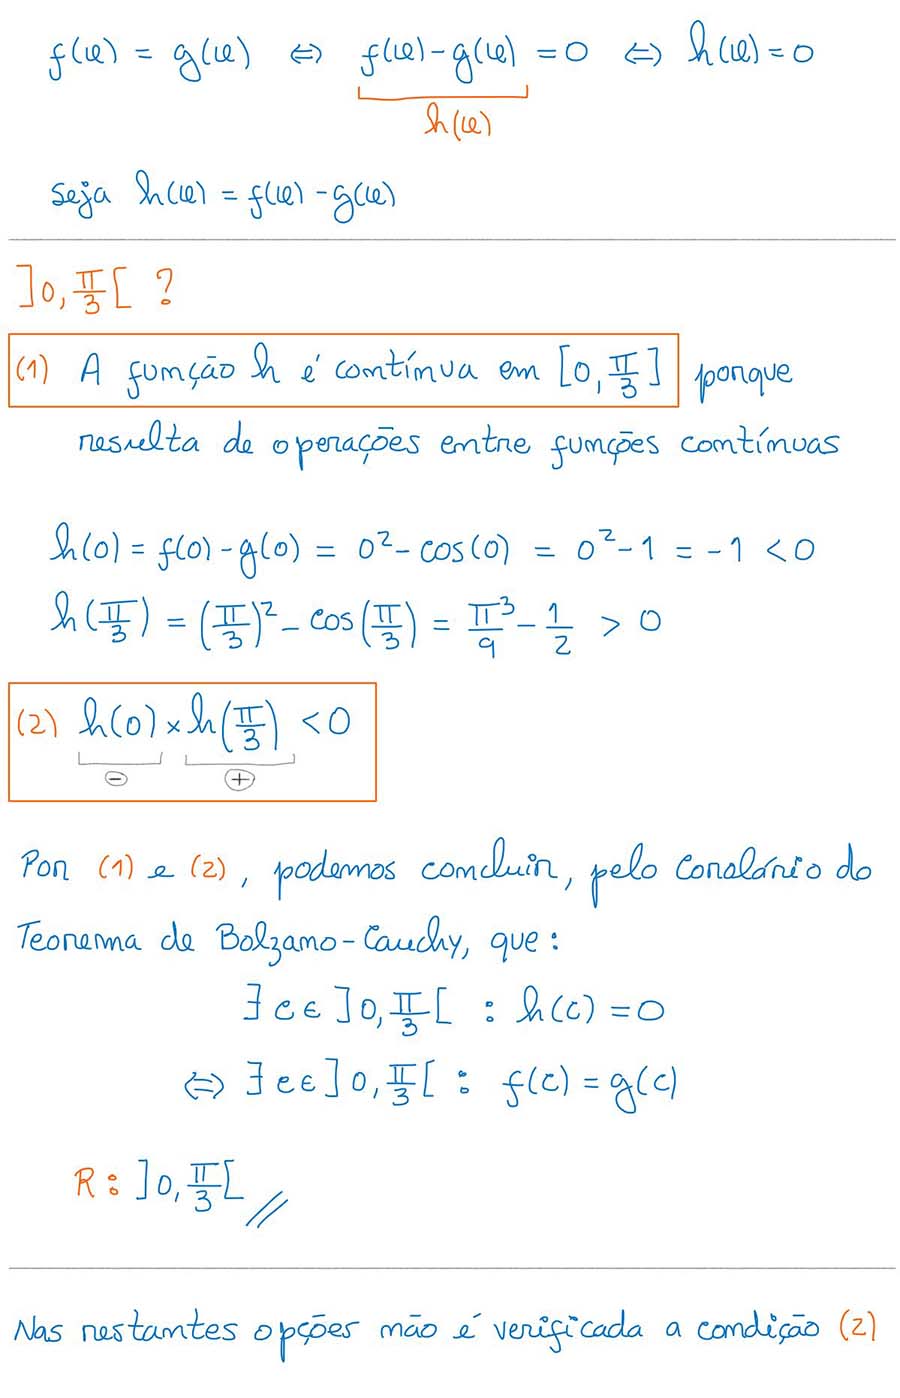 f(x) = g(x) ⇔ f(x) - g(x) = 0 ⇔ h(x) = 0
h(x)
seja h(x) = f(x) - g(x)
]0, π/3[ ?
(1) A função h é contínua em [0, π/3] porque
resulta de operações entre funções contínuas
h(0) = f(0) - g(0) = 0² - cos(0) = 0² - 1 = -1 < 0
h(π/3) = (π/3)² - cos(π/3) = π³/9 - 1/2 > 0
(2) h(0) × h(π/3) < 0
- +
Por (1) e (2), podemos concluir, pelo Corolário do
Teorema de Bolzano-Cauchy, que:
∃ c ∈ ]0, π/3[ : h(c) = 0
⇔ ∃ c ∈ ]0, π/3[ : f(c) = g(c)
R: ]0, π/3[ //
Nas restantes opções não é verificada a condição (2)